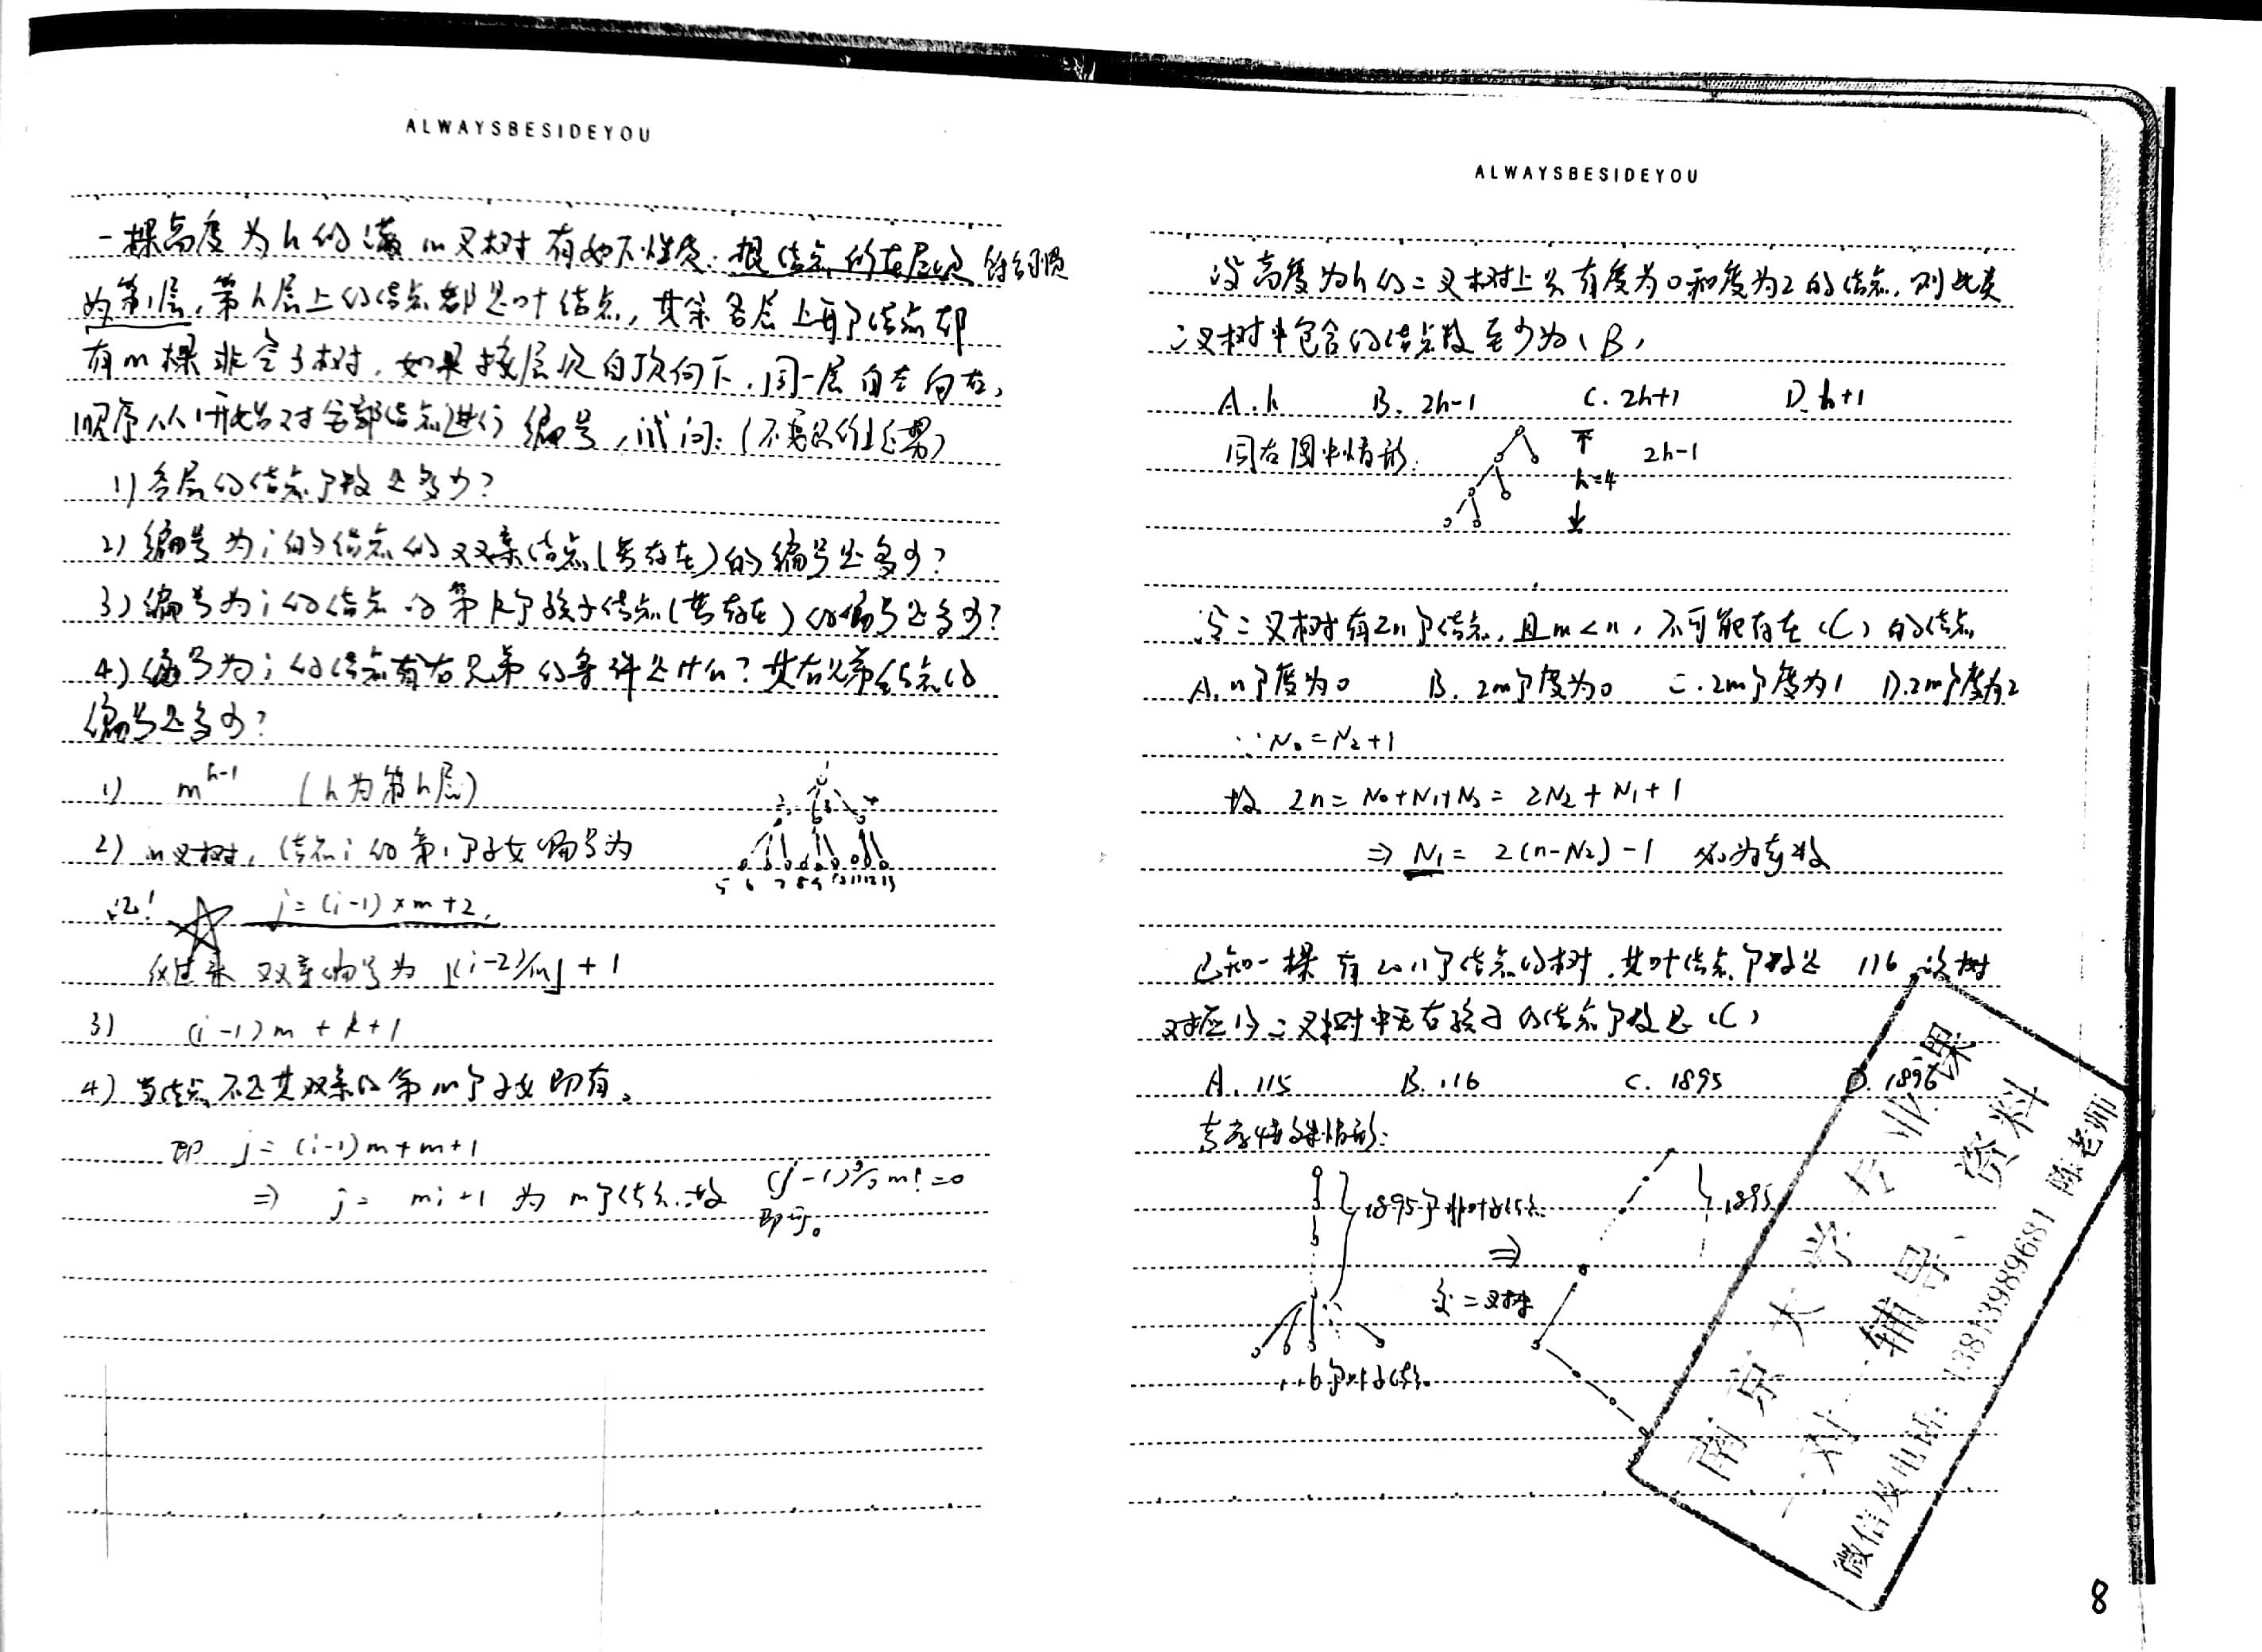 ALWAYSBESIDEYOU
一棵高度为h的满m叉树有如下性质:根结点所在层次
为第1层,第h层上的结点都是叶结点,其余各层上每个结点都
有m棵非空子树,如果按层次自顶向下,同一层自左向右,
顺序从1开始对全部结点进行编号,试问:(不要只给结果)
1) 各层的结点个数是多少?
2) 编号为i的结点的双亲结点(若存在)的编号是多少?
3) 编号为i的结点的第k个孩子结点(若存在)的编号是多少?
4) 编号为i的结点有右兄弟的条件是什么?其右兄弟结点的
编号是多少?
1) m^{h-1} (h为第h层)
2) m叉树,结点i的第1个子女编号为
j=(i-1)×m+2,
反过来 双亲编号为 ⌊(i-2)/m⌋+1
3) (i-1)m+k+1
4) 当结点不是其双亲的第m个子女即有。
即 j=(i-1)m+m+1
⇒ j= mi+1 为m个结点.故 (j-1)%m!=0
即可。
1
2 3 4
5 6 7 8 9 10 11 12 13
ALWAYSBESIDEYOU
设高度为h的二叉树上只有度为0和度为2的结点,则此类
二叉树中包含的结点数至少为(B)
A. h B. 2h-1 C. 2h+1 D. h+1
同右图中情形: h=4 2h-1
若二叉树有2n个结点,且m<n,不可能存在(C)的结点
A. n个度为0 B. 2m个度为0 C. 2m个度为1 D. 2m个度为2
∵N₀=N₂+1
故 2n=N₀+N₁+N₂=2N₂+N₁+1
⇒ N₁= 2(n-N₂)-1 必为奇数
已知一棵有2011个结点的树,其叶结点个数是 116,该树
对应的二叉树中无右孩子的结点个数是(C)
A. 115 B. 116 C. 1895 D. 1896
考虑特殊情形:
1895个非叶结点
⇒
变二叉树
1895
116个叶子结点
南京大学专业课
一对一辅导、资料
微信及电话: 13813989681 陈老师
8